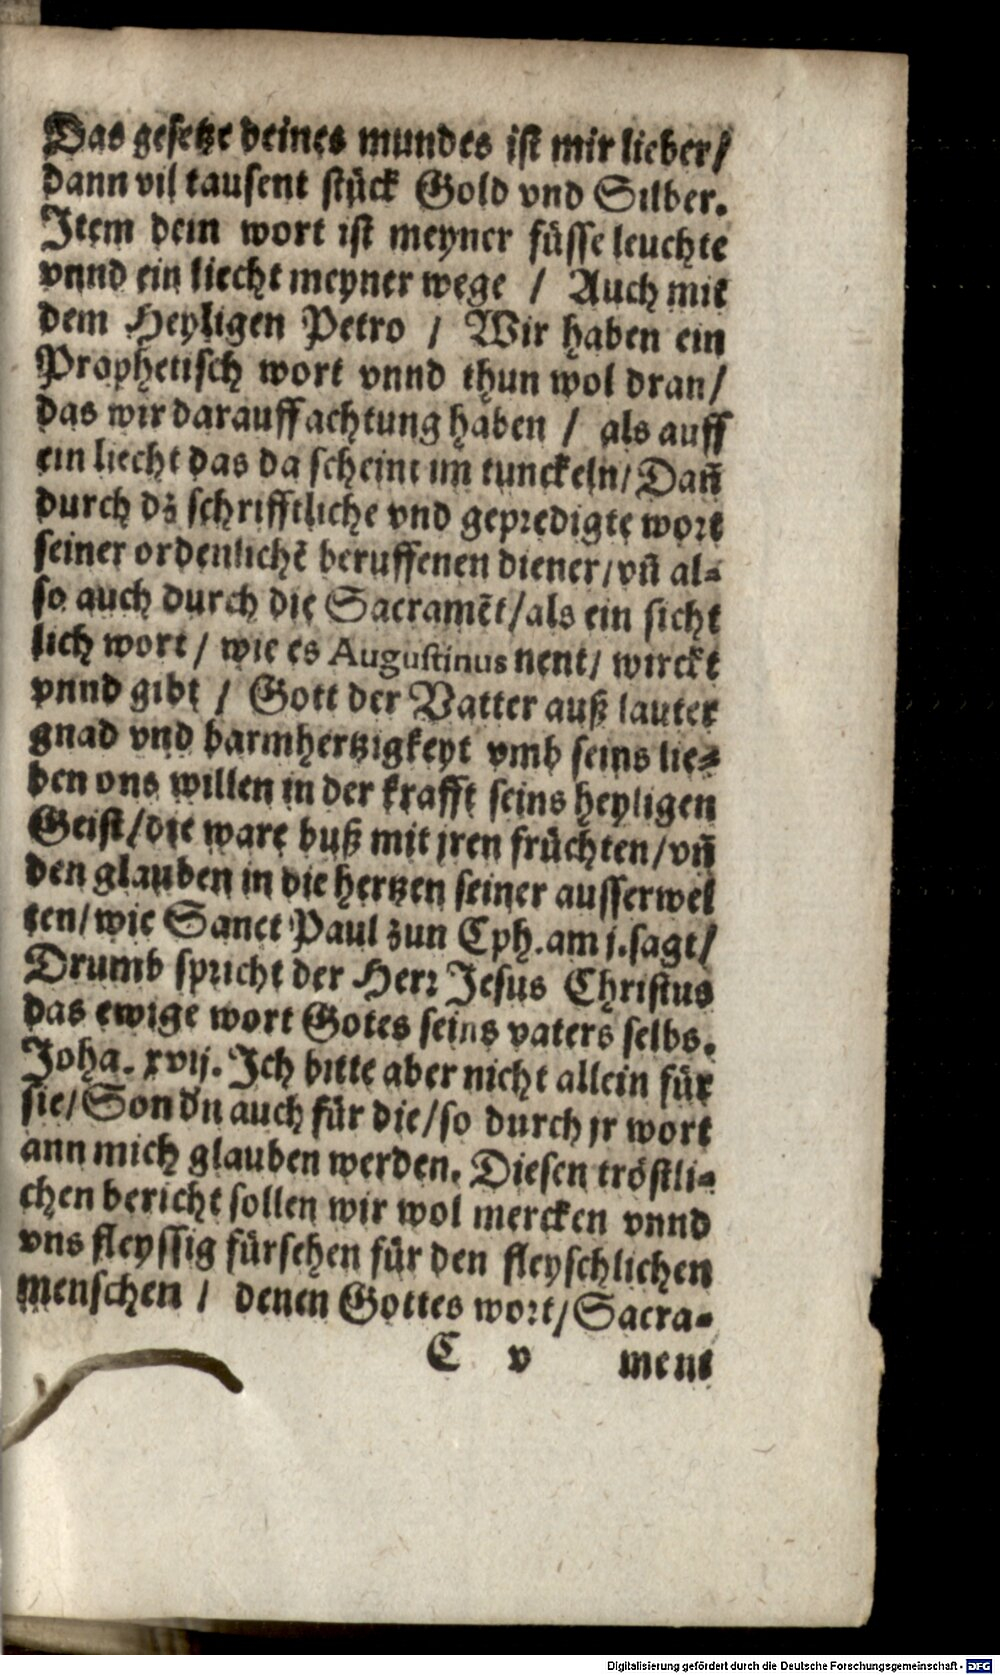 Das gesetze deines mundes ist mir lieber/
dann vil tausent stück Gold vnd Silber.
Item dein wort ist meyner füsse leuchte
vnnd ein liecht meyner wege / Auch mit
dem Heyligen Petro / Wir haben ein
Prophetisch wort vnnd thun wol dran/
das wir darauff achtung haben / als auff
ein liecht das da scheint im tunckeln/ Dañ
durch dz schrifftliche vnd gepredigte wort
seiner ordenlichē beruffenen diener/ vñ al-
so auch durch die Sacramēt/ als ein sicht
lich wort/ wie es Augustinus nent/ wirckt
vnnd gibt / Gott der Vatter auß lauter
gnad vnd barmhertzigkeyt vmb seins lie-
ben ons willen in der krafft seins heyligen
Geist/ die ware buß mit jren früchten/ vñ
den glauben in die hertzen seiner ausserwel
ten/ wie Sanct Paul zun Eph. am j. sagt/
Drumb spricht der Herr Jesus Christus
das ewige wort Gotes seins vaters selbs.
Joha. xvij. Ich bitte aber nicht allein für
sie/ Sondn auch für die/ so durch jr wort
ann mich glauben werden. Diesen tröstli-
chen bericht sollen wir wol mercken vnnd
vns fleyssig fürsehen für den fleyschlichen
menschen / denen Gottes wort/ Sacra-
C v ment
Digitalisierung gefördert durch die Deutsche Forschungsgemeinschaft - DFG